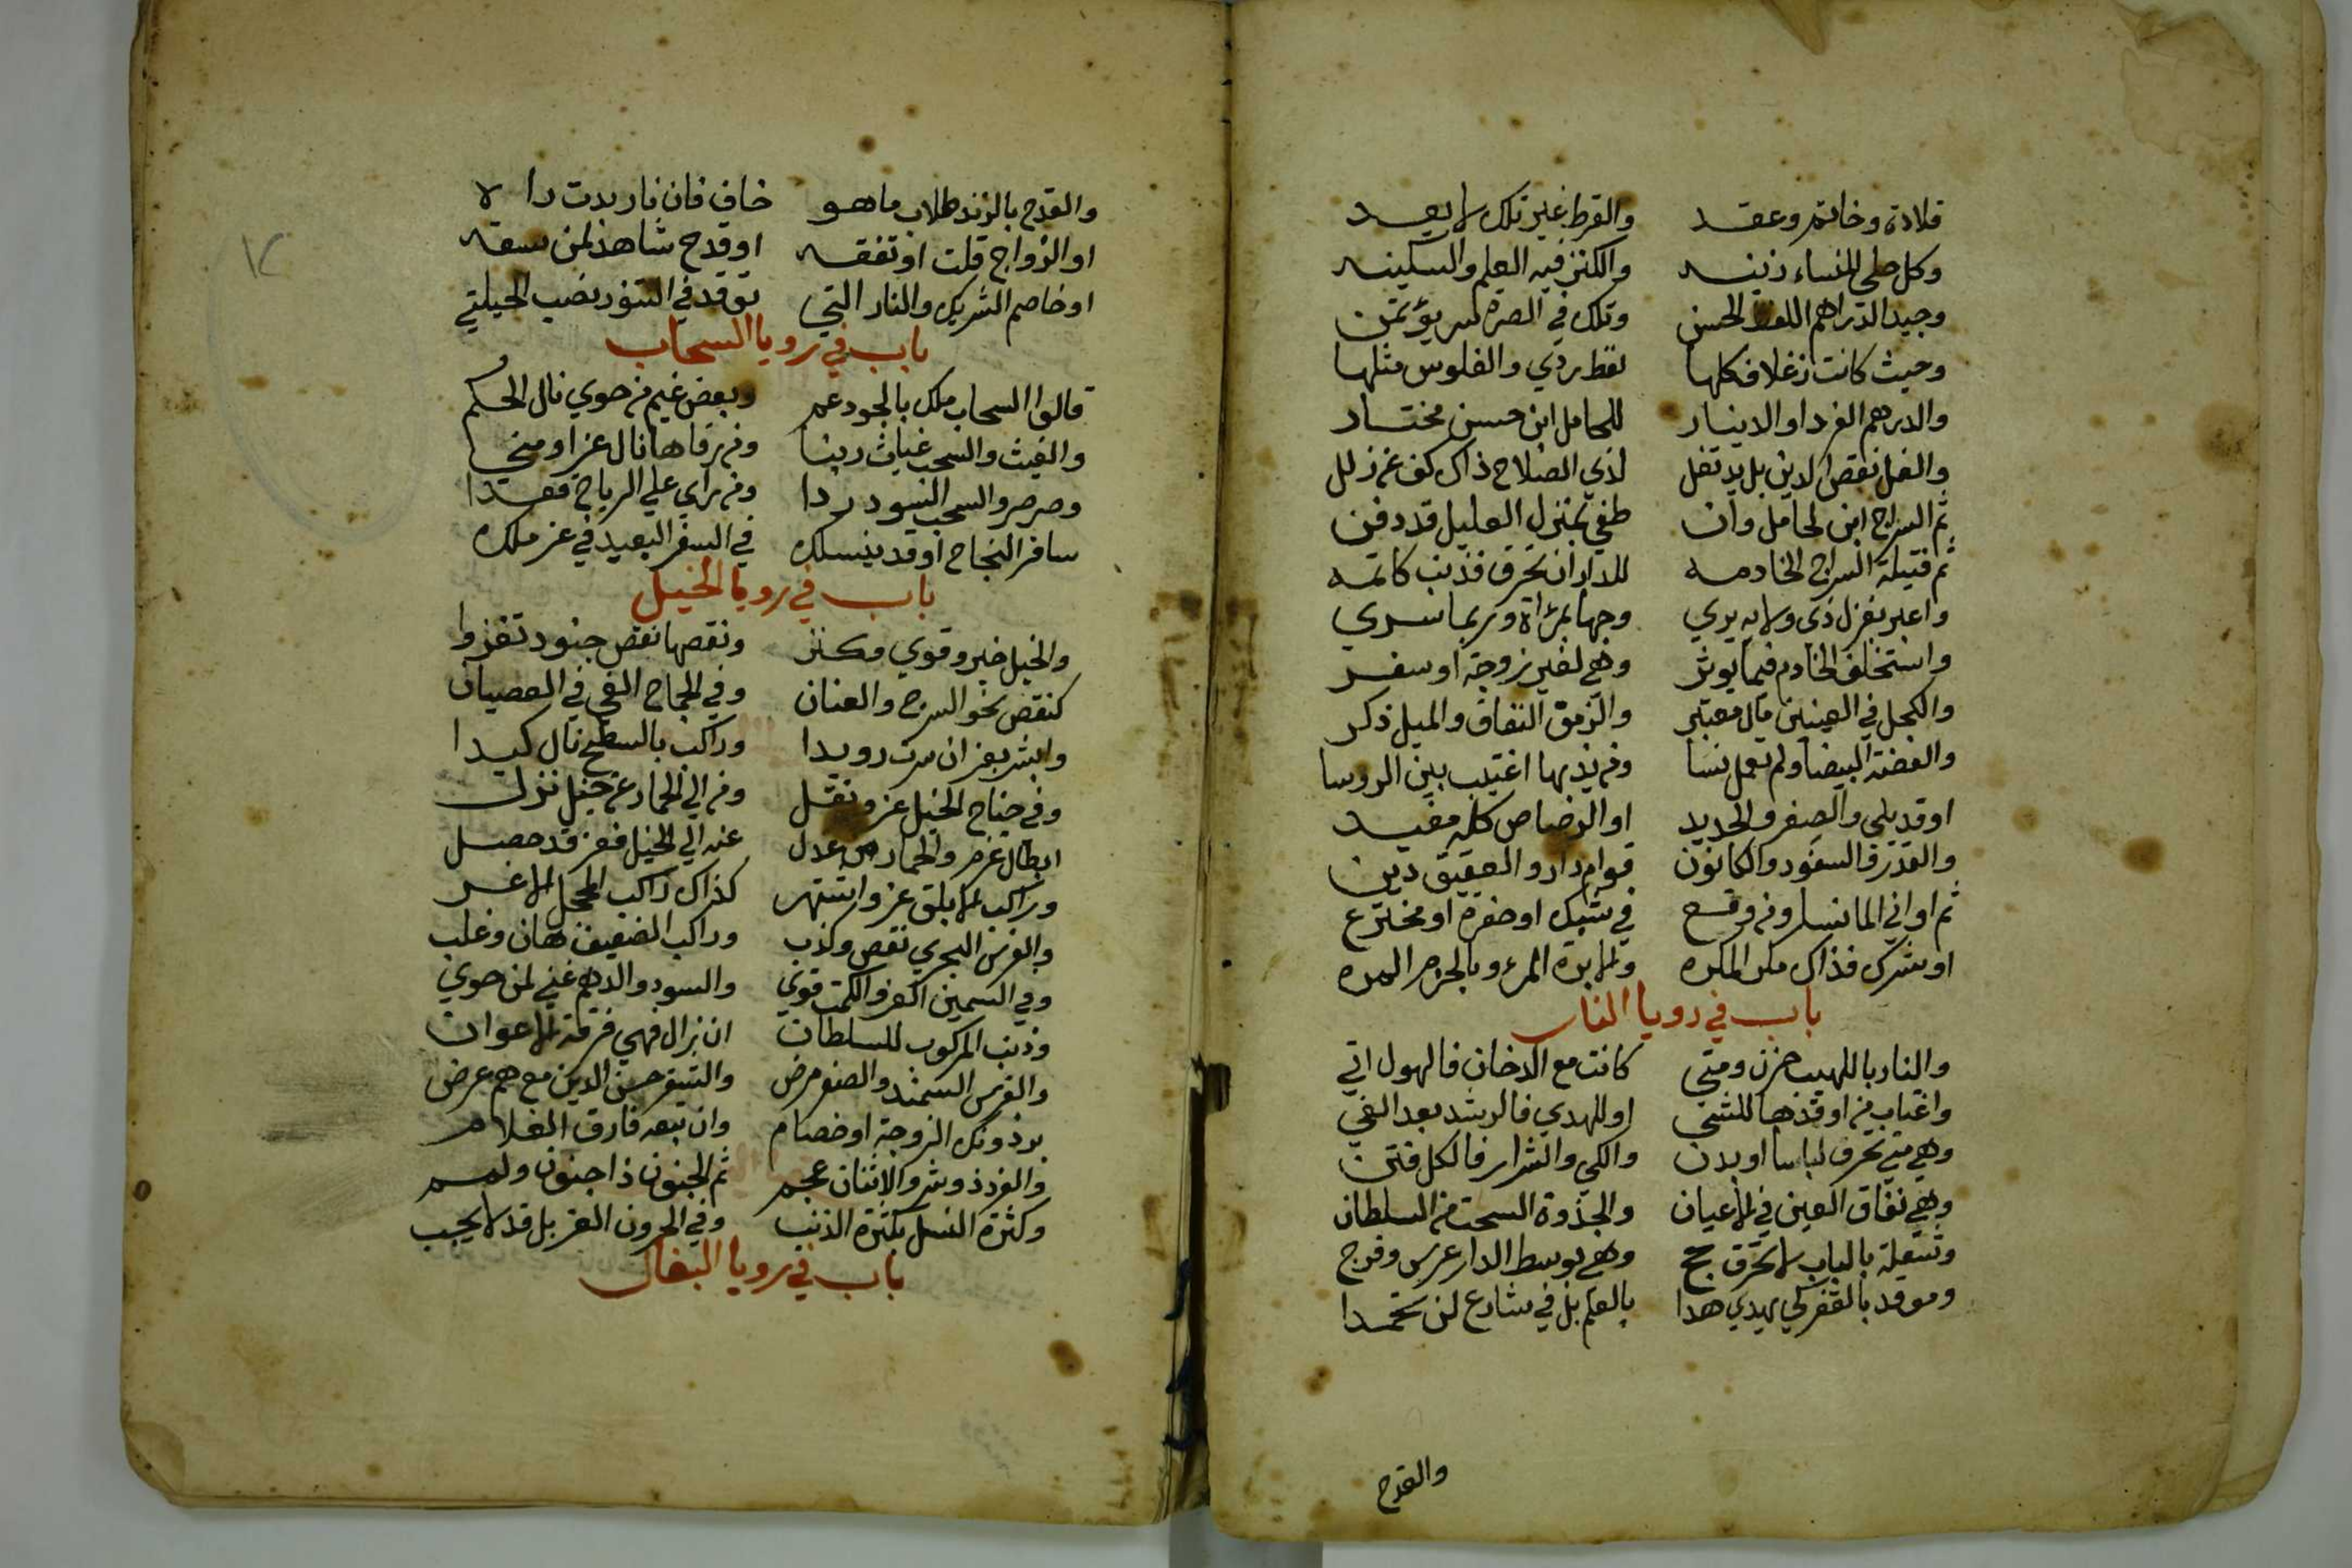 قلادة وخاتم وعقد والقرط غير تلك لا يعد
وكل حلي للنساء زينه والكنز فيه العلم والسكينه
وجيد الدراهم اللفظ الحسن وتلك في الصرة لسر يؤتمن
وحيث كانت زغلا فكلها لفظ ردي والفلوس مثلها
والدرهم الفرد او الدينار للحامل ابن حسن مختار
والغل نقص الدين بل يد تغل لذي الصلاح ذاك كف عن زلل
ثم السراج ابن لحامل وان طفي بمنزل العليل قد دفن
ثم فتيلة السراج الخادمه للدار ان تحرق فذنب كاتمه
واعبر بغزل ذي ولايه يري وجها بمراة وربما سري
واستخلف الخادم فيما يوثر وهي لغير زوجة او سفر
والكحل في العينين مال معتبر والزمق النفاق والميل ذكر
والفضة البيضا ولم تعمل نسا ومن يذيبها اغتيب بين الروسا
او قد بلي والصفر والحديد او الرصاص كله مفيد
والقدر والسفود والكانون قوام دار والعقيق دين
ثم اواني الما نسا ومن وقع في شبك او حفرة او مخترع
او شرك فذاك مكر المكره والابرة المرء وبالجرم المره
باب في رويا النار
والنار باللهيب حزن ومتي كانت مع الدخان فالهول اتي
واغتاب من اوقدها للشي او للهدي فالرشد بعد الغي
وهي متي تحرق لباسا او بدن والكي والشرار فالكل فتن
وهي نفاق العين في الاعيان والجذوة السحت من السلطان
وشعلة بالباب لا تحرق حج وهي بوسط الدار عرس وفرج
وموقد بالقفر كي يهدي هدا بالعلم بل في شارع لن تخمدا
والقدح
والقدح بالزند طلاب ما هو خاف فان نار بدت دا لا
او الزواج قلت او تفقه او قدح شاهد لمن سفه
او خاصم الشريك والنار التي توقد في التنور نصب الحيلتي
باب في رويا السحاب
قالوا السحاب ملك بالجود عم وبعض غيم من حوي نال الحكم
والغيث والسحب غياث ربنا ومن رقاها نال عزا ومني
وصرصر والسحب السود ردا ومن راي علي الرياح قعدا
سافر النجاح او قد ينسلك في السفر البعيد في عز ملك
باب في رويا الخيل
والخيل خير وقوي وكنز ونقصها نقص جنود تغزوا
كنقص نحو السرج والعنان وفي الجماح الغي في العصيان
وابشر بعز ان سرت رويدا وراكب بالسطح نال كيدا
وفي جناح الخيل عز ونقل ومن الي الحمار عن خيل نزل
ابطال عزم والحمار من عدل عنه الي الخيل فعز قد حصل
وراكب الابلق عز واشتهر كذاك راكب المحجل الاغر
والفرس البحري نقص وكذب وراكب الضعيف هان وغلب
وفي السمين العز والكمت قوي والسود والدهم غني لمن حوي
وذنب المركوب للسلطان ان زال فهي فرقة الاعوان
والفرس السمند والصفر مرض والشقر حسن الدين مع هم عرض
برذونك الزوجة او خصام وان تبعه فارق الغلام
والفرد ذو شر والاثنان عجم ثم الجنون ذا جنون ولمم
وكثرة النسل بكثرة الذنب وفي الحرون العز بل قد لا يجب
باب في رويا البغال